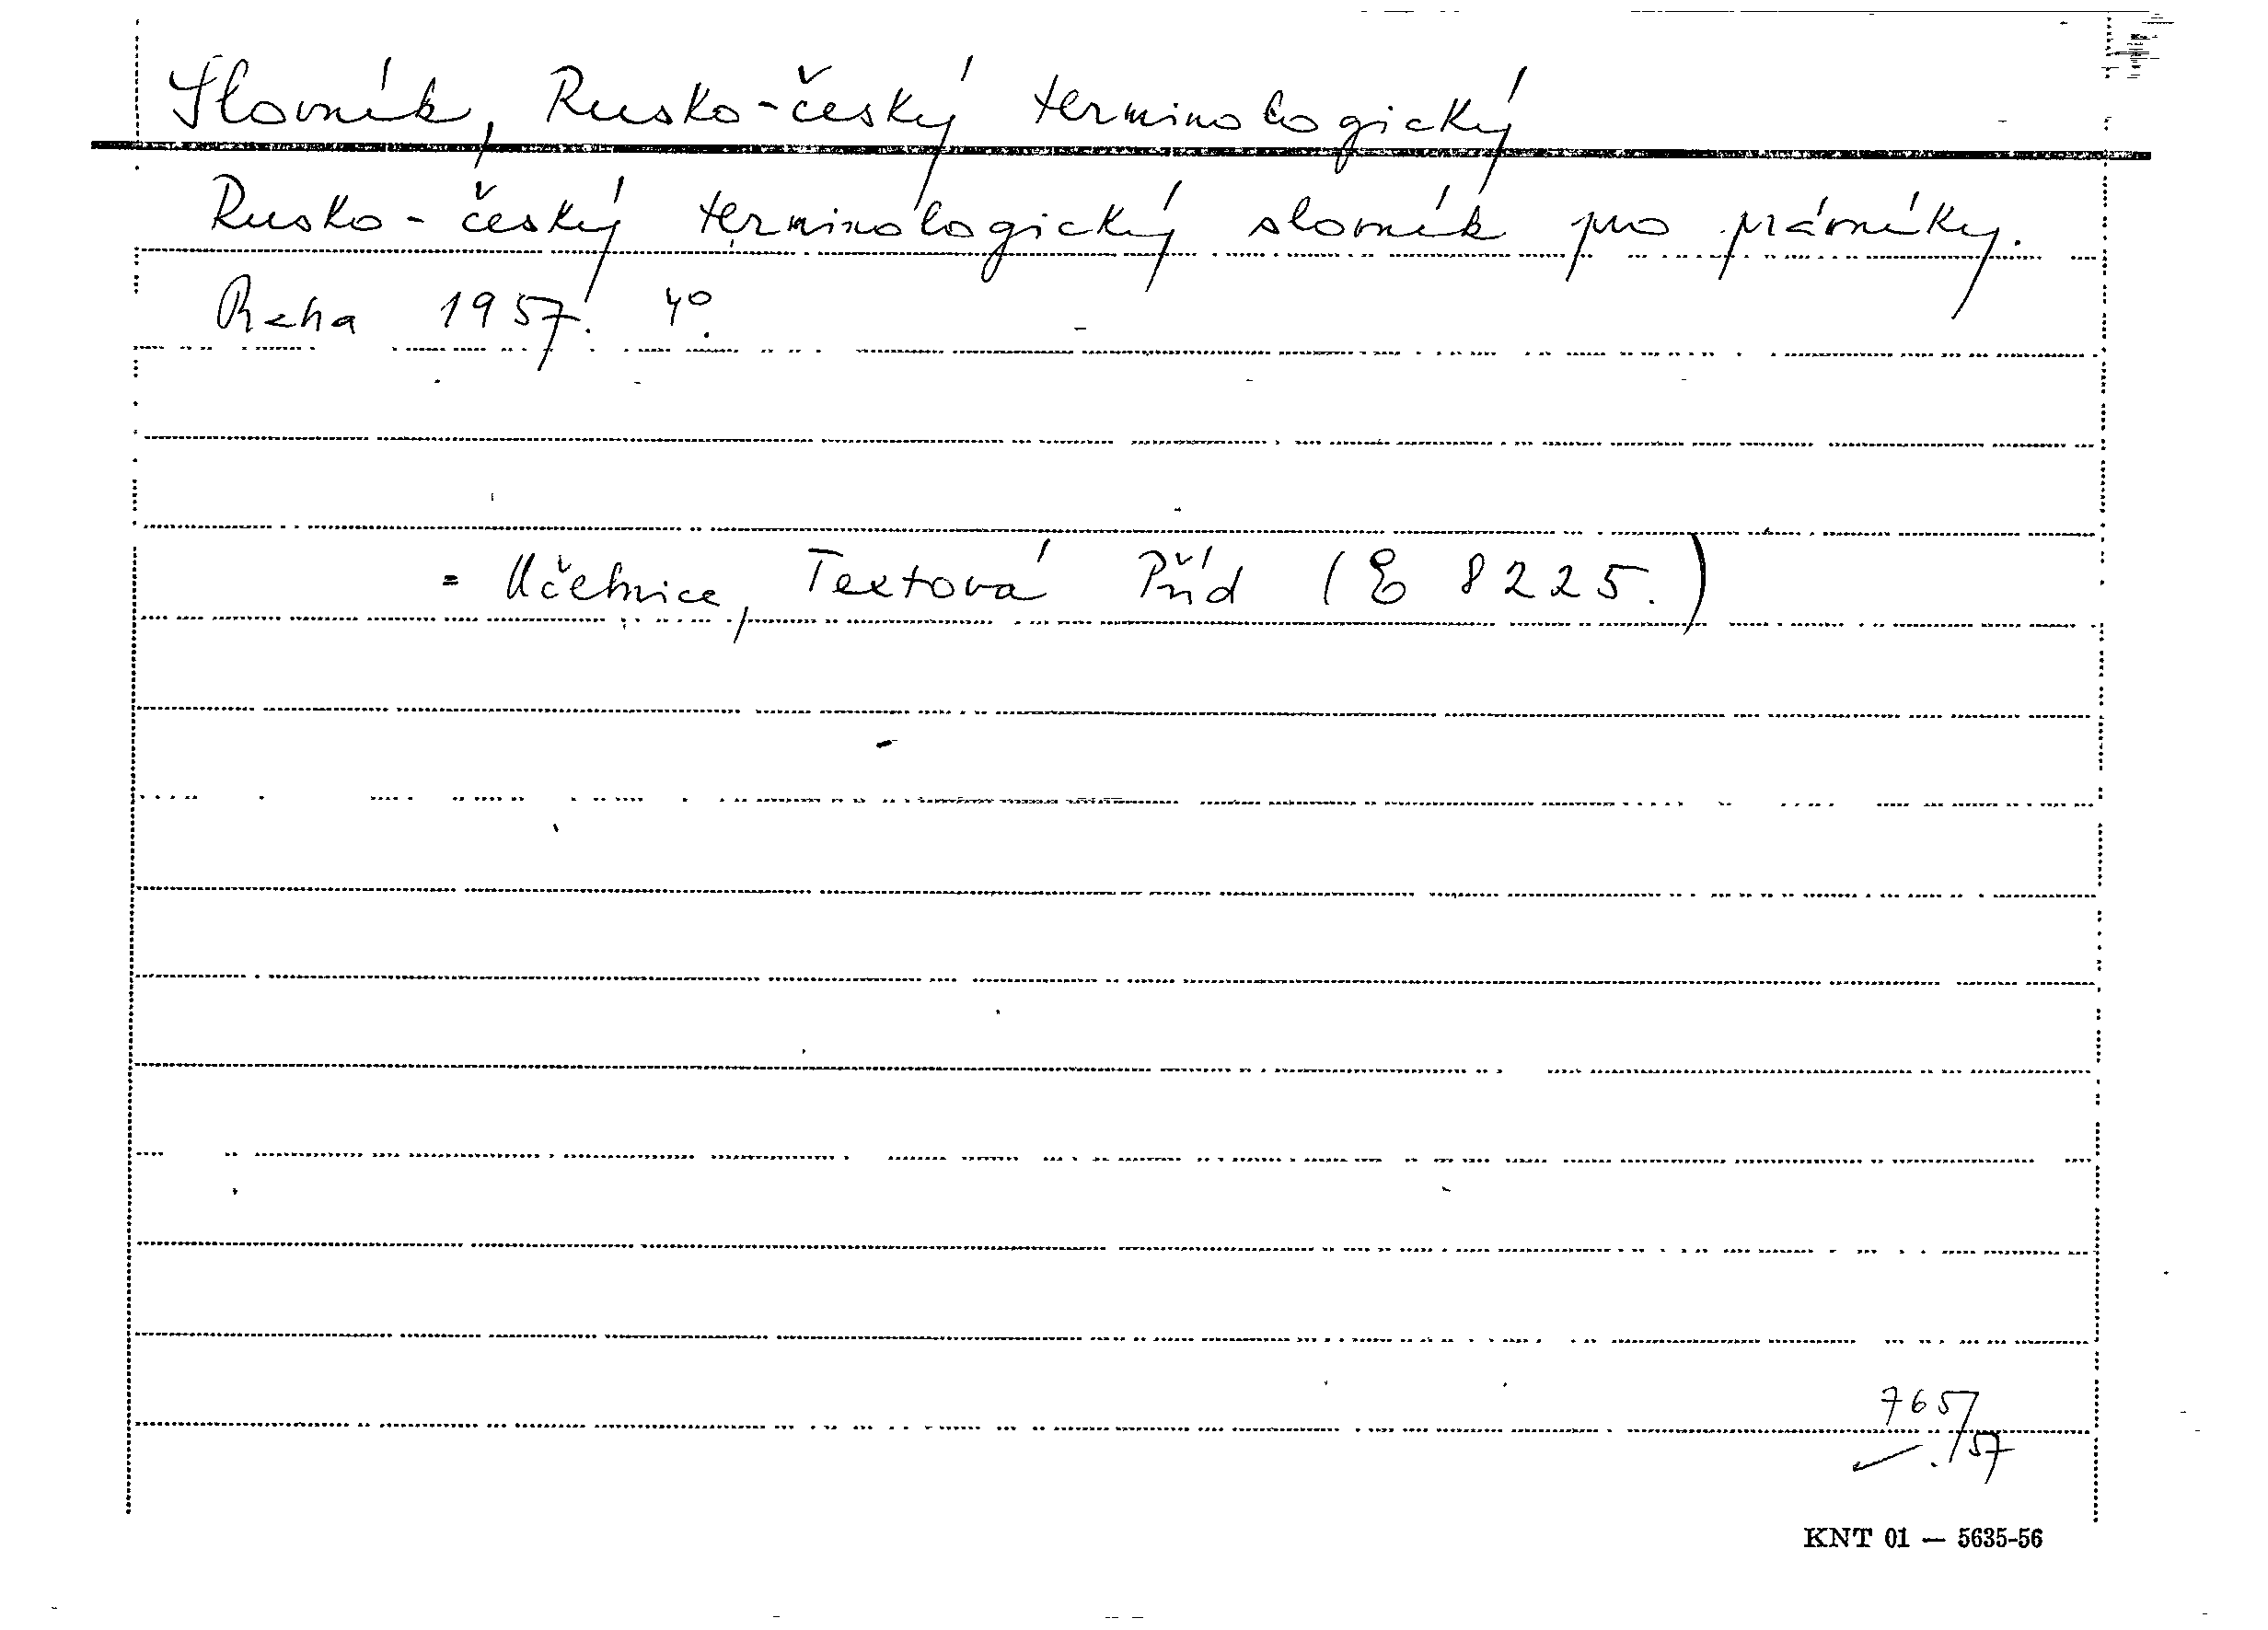 Slovník, Rusko-český terminologický
Rusko-český terminologický slovník pro právníky.
Praha 1957. 4°.
= Učebnice, Textová Příd (E 8225.)
765/57
KNT 01 — 5635-56